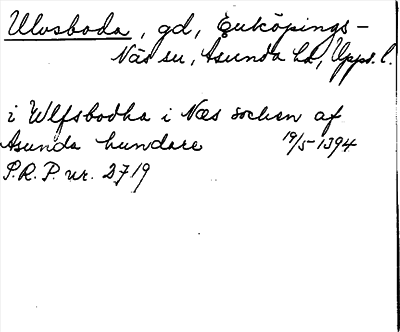 Ulvsboda, gd, Enköpings-
Näs sn, Åsunda hd, Upps. l.
i Wlfsbodha i Næs sochen af
Asunda hundare 19/5 1394
P.R.P. nr. 2719